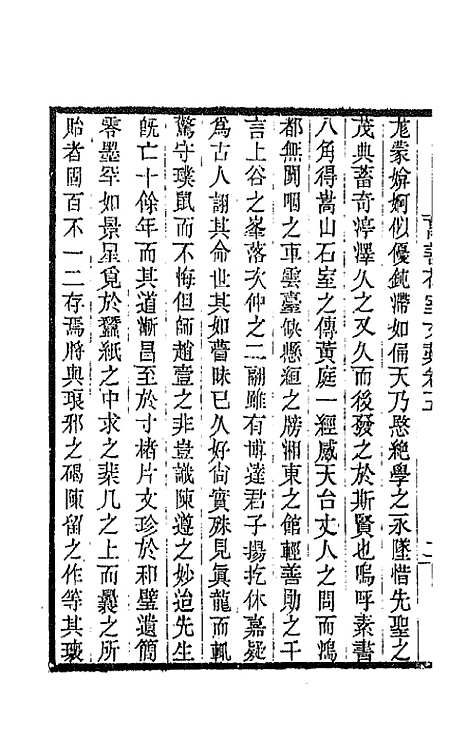 尨蒙婀婀似優鈍滯如偏天乃愍絶學之永墜惜先聖之
茂典蓄奇渟澤久之又久而後發之於斯賢也嗚呼素書
八角得嵩山石室之傳黃庭一經感天台丈人之問而鴻
都無闐咽之車雲臺缺懸絙之牓湘東之館輕善勛之千
言上谷之峯落次仲之二翮雖有博達君子揚扢休嘉疑
爲古人詡其命世其如瞢昧已久好尙實殊見眞龍而輒
驚守璞鼠而不悔但師趙壹之非豈識陳遵之妙迨先生
旣亡十餘年而其道漸昌至於寸楮片文珍於和璧遺簡
零墨罕如景星覓於蠶紙之中求之棐几之上而曩之所
貽者固百不一二存焉將與琅邪之碣陳留之作等其瓌